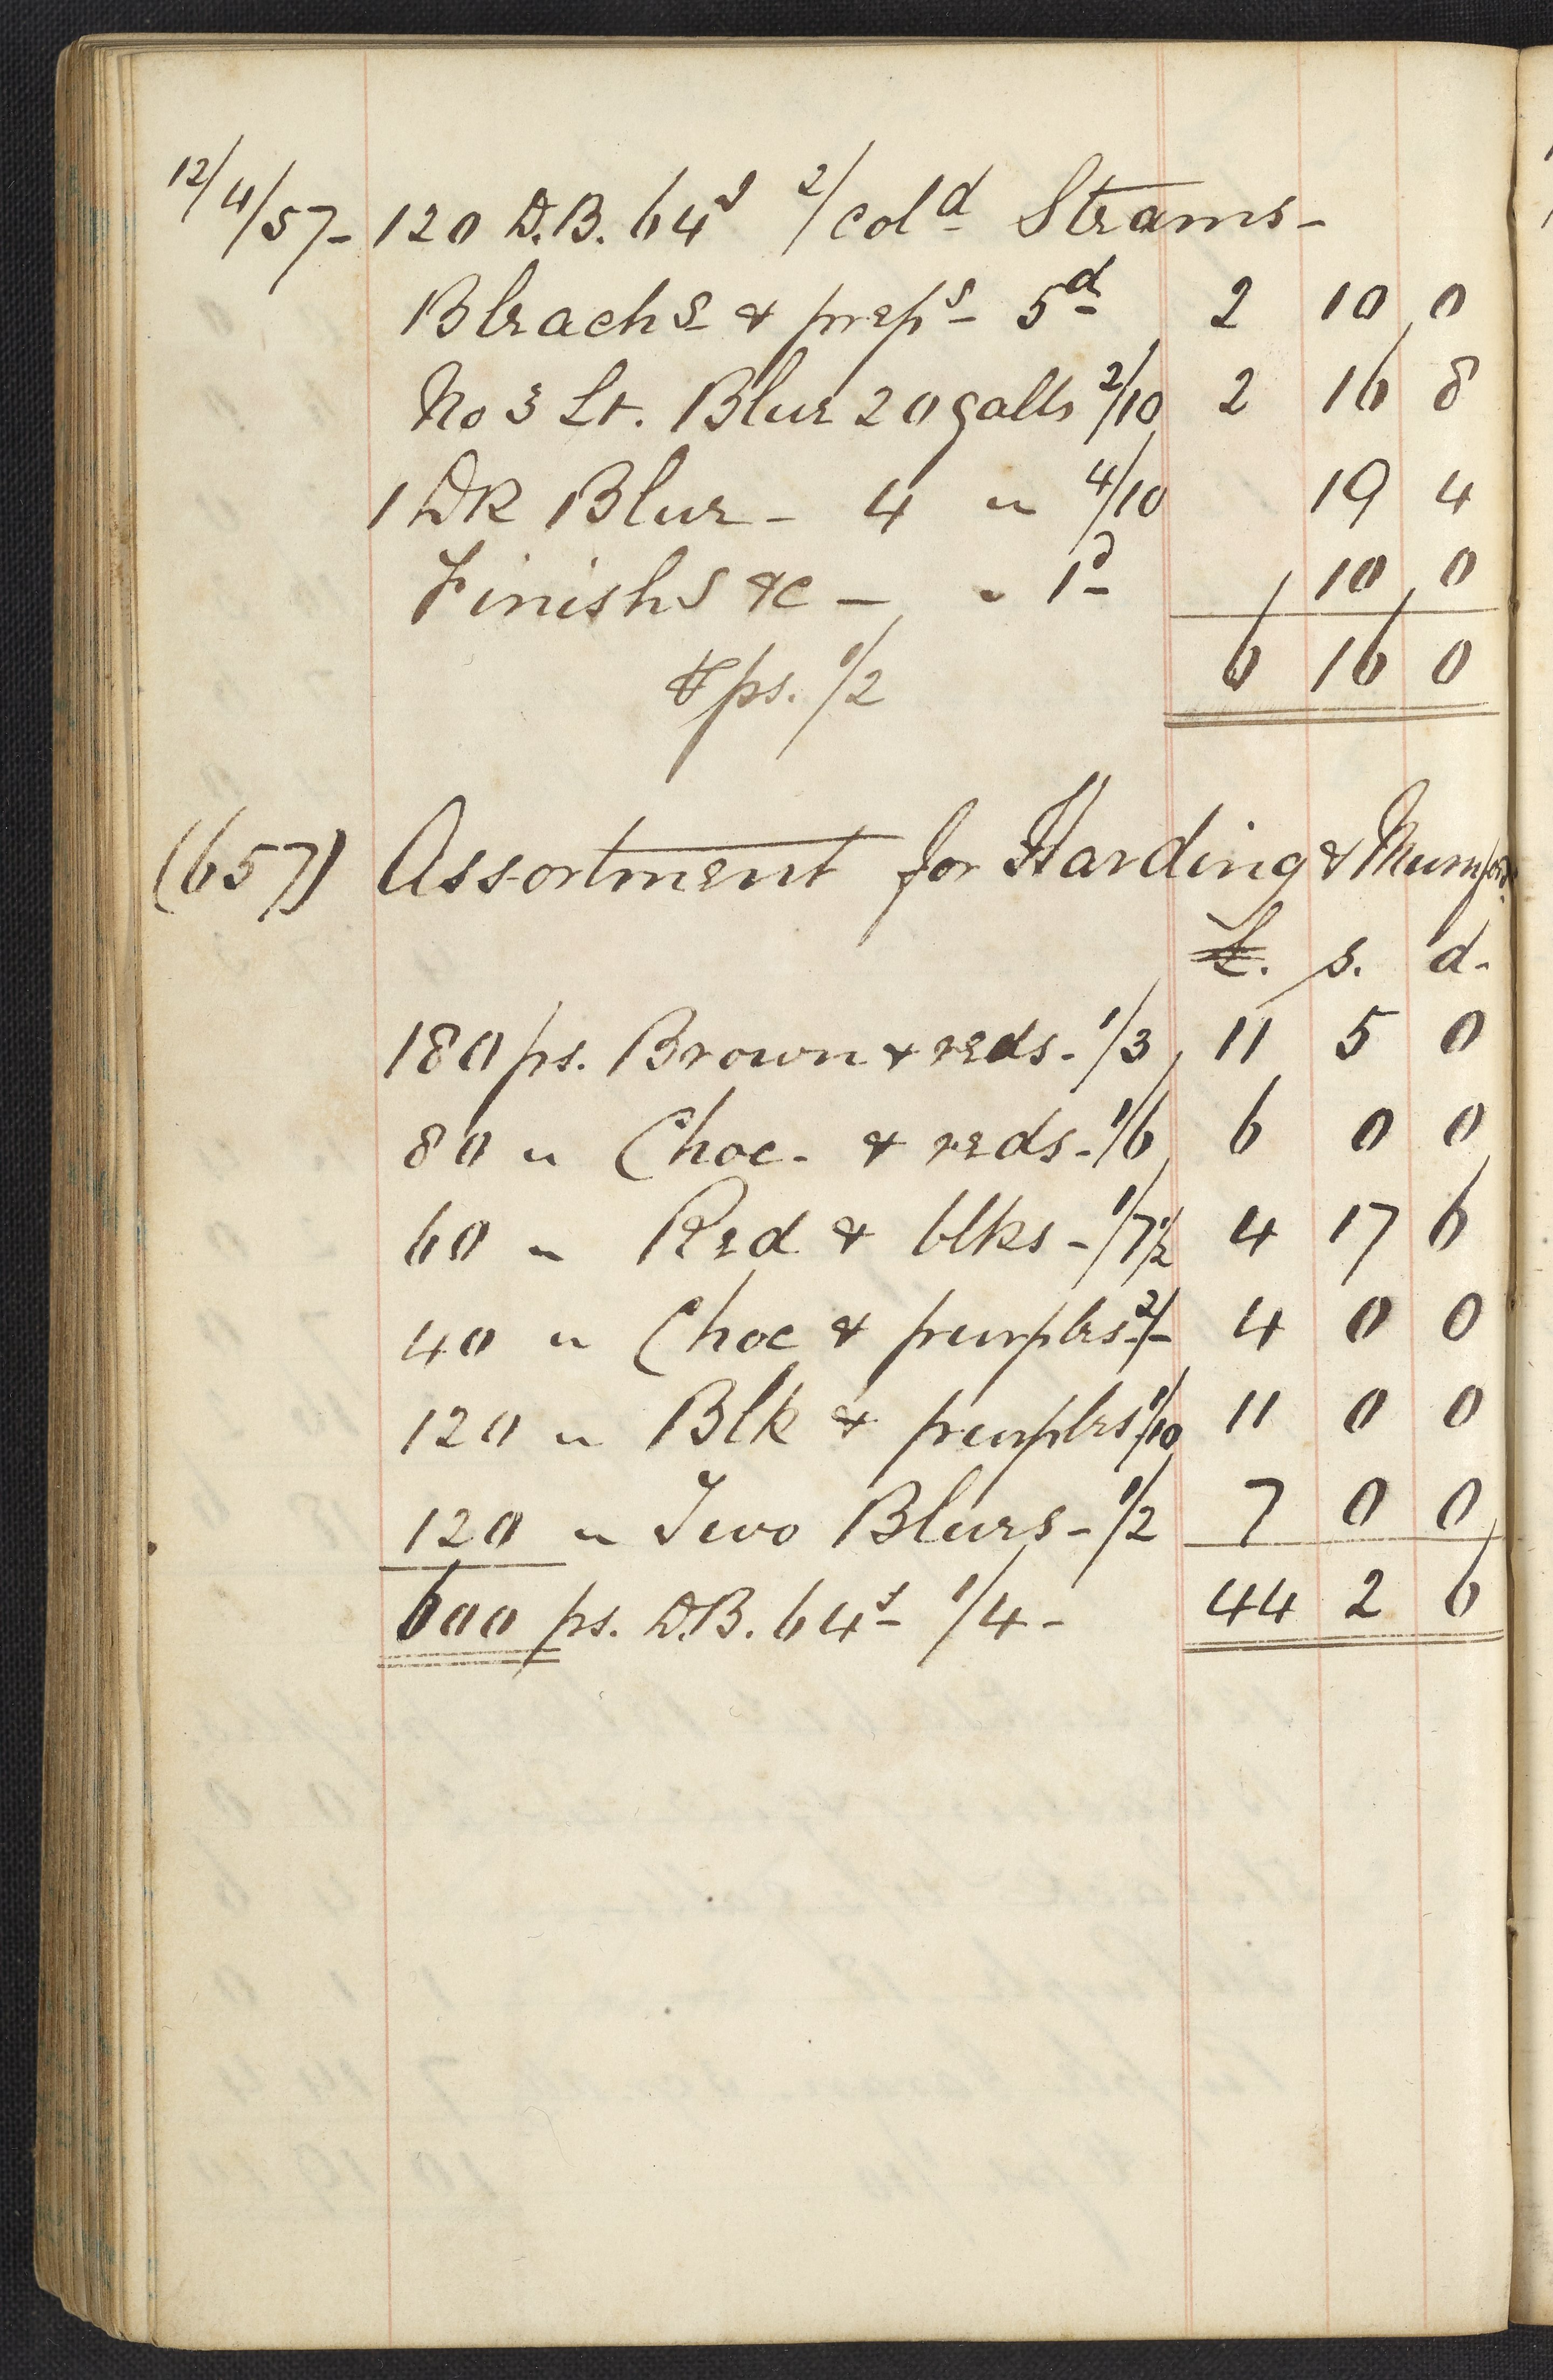 12/4/57- 120 D.B. 64s 2/cold Steams-
Bleachg & prepg- 5d 2 10 0
No 3 Lt. Blue 20 galls 2/10 2 16 8
1 DK Blue - 4 " 4/10 19 4
Finishg &c - " 1d- 10 0
6 16 0
ps. 1/2
(657) Assortment for Harding & Mumford
£. s. d.
180 ps. Brown & reds- 1/3 11 5 0
80 " Choc. & reds- 1/6 6 0 0
60 " Red & blks- 1/7½ 4 17 6
40 " Choc & purples 2/- 4 0 0
120 " Blk & purples 1/10 11 0 0
120 " Two Blues- 1/2 7 0 0
600 ps. D.B. 64s- 1/4- 44 2 6